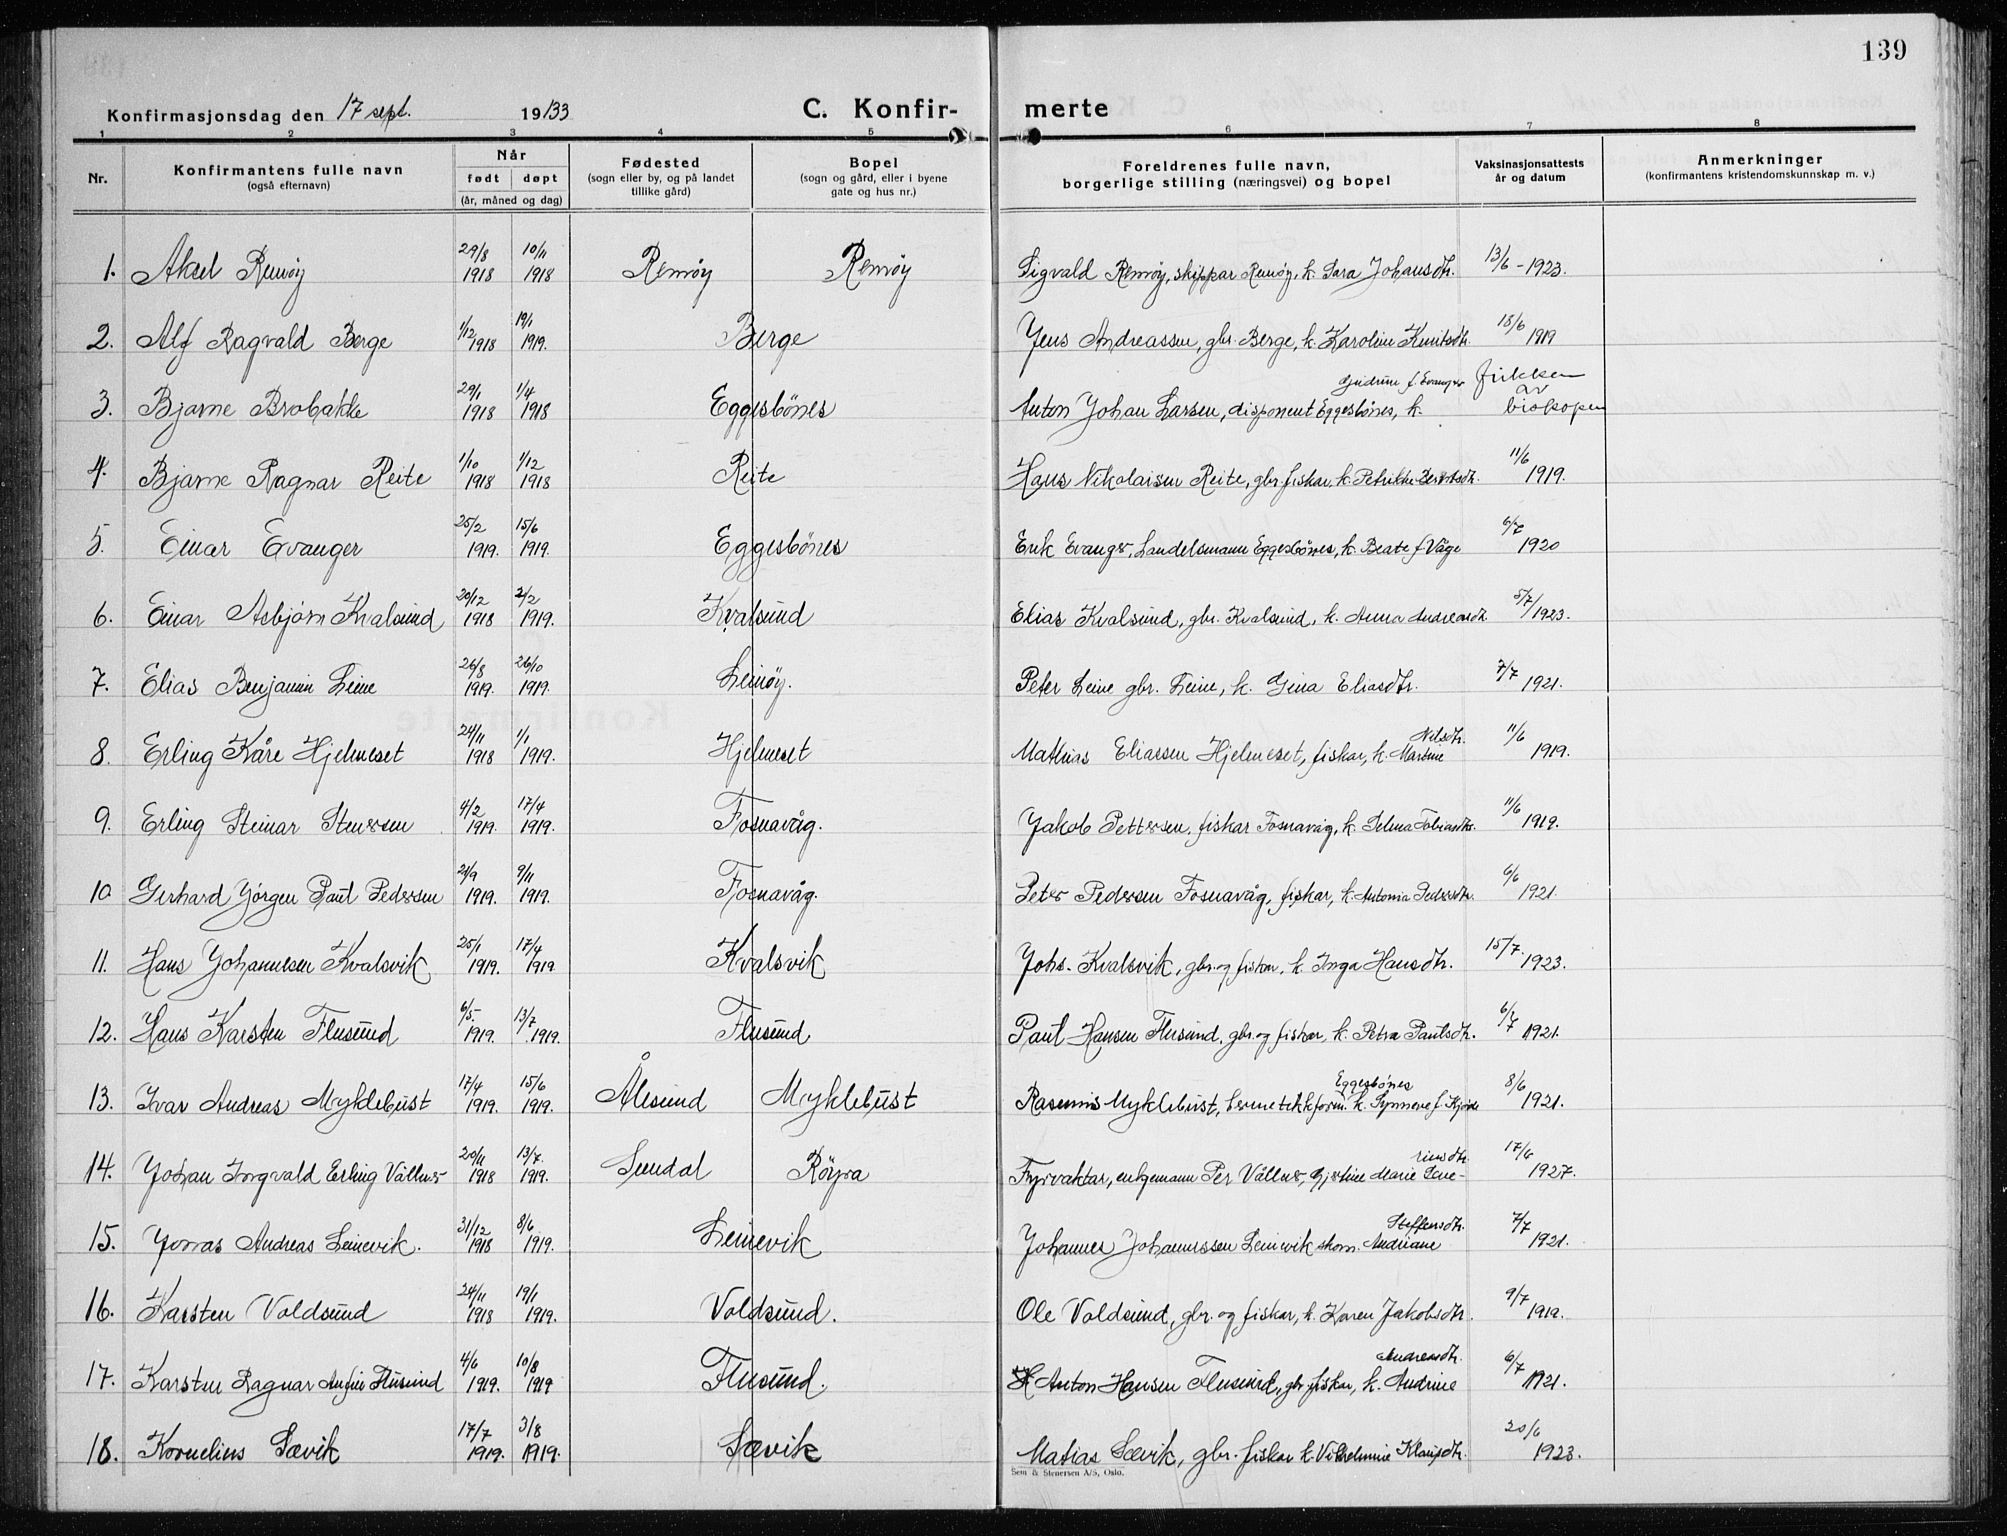 139
Konfirmasjonsdag den 17 sept. 1933 C. Konfirmerte
1 2 3 4 5 6 7 8
Nr. Konfirmantens fulle navn (også efternavn) Når født døpt (år, måned og dag) Fødested (sogn eller by, og på landet tillike gård) Bopel (sogn og gård, eller i byene gate og hus nr.) Foreldrenes fulle navn, borgerlige stilling (næringsvei) og bopel Vaksinasjonsattests år og datum Anmerkninger (konfirmantens kristendomskunnskap m. v.)
1. Aksel Remøy 29/8 1918 10/11 1918 Remøy Remøy Sigvald Remøy, skippar Remøy, k. Sara Johansdtr. 13/6 - 1923.
2. Alf Ragvald Berge 1/12 1918 19/1 1919. Berge Jens Andreassen, gbr. Berge, k. Karoline Knutsdtr. 18/6 1919
3. Bjarne Brobakke 29/1 1918 1/4 1918 Eggesbönes Anton Johan Larsen, disponent Eggesbönes, k. Gudrun f. Evanger av biskopen
4. Bjarne Ragnar Reite 1/10 1918 1/12 1918 Reite Hans Nikolaisen Reite, gbr. fiskar, k. Petrikke 11/6 1919.
5. Einar Evanger 25/2 1919. 15/6 1919. Eggesbönes Erik Evanger, Eggesbönes, k. Beate f. Våge 6/7 1920
6. Einar Asbjørn Kvalsund 20/12 1918 2/2 1919. Kvalsund Elias Kvalsund, gbr. Kvalsund, k. Anna Andreasdtr. 5/7/1923.
7. Elias Benjamin Leine 26/8 1919. 26/10 1919. Leinøy. Peter Leine gbr. Leine, k. Gina Eliasdtr. 7/7 1921.
8. Erling Kåre Hjelmeset 24/11 1918 1/1 1919. Hjelmeset Mathias Eliassen Hjelmeset, fiskar, k. Martine Nilsdtr. 11/6 1919.
9. Erling Steinar Stenersen 4/2 1919. 17/4 1919. Fosnavåg. Jakob Pettersen, fiskar Fosnavåg, k. Selma Tobiasdtr. 11/6 1919.
10 Gerhard Jörgen Paul Pedersen 21/9 1919. 9/11 1919. Fosnavåg. Peter Pedersen Fosnavåg, fiskar, k. Antonia Pedersdtr. 6/6 1921.
11. Hans Johannesen Kvalsvik 25/1 1919. 17/4 1919 Kvalsvik Johs. Kvalsvik, gbr. og fiskar, k. Inga Hansdtr. 15/7. 1923.
12. Hans Karsten Flusund 6/5. 1919. 13/7 1919. Flusund Paul Hansen Flusund, gbr. og fiskar, k. Petra Paulsdtr. 6/7 1921.
13. Ivar Andreas Myklebust 17/4 1919. 15/6 1919. Ålesund Myklebust Rasmus Myklebust, Eggesbönes k. Synnøve f. 8/6 1921.
14. Johan Ingvald Erling Vållner 20/11 1918 13/7. 1919. Sundal Röyra Fyrvaktar, enkjemann Per Vållner, Marie 17/6 1927.
15. Jonas Andreas Leinevik. 31/12 1918 8/6 1919. Leinevik Johannes Johannessen Leinevik skom. Andriane Steffensdtr. 7/7 1921.
16. Karsten Voldsund 24/11 1918 19/1 1919. Voldsund. Ole Voldsund, gbr. og fiskar, k. Karen Jakobsdtr. 9/7 1919.
17. Karsten Ragnar Anfin Flusund 4/6 1919. 10/8 1919 Flusund. Anton Hansen Flusund, gbr. fiskar, k. Andrine Andreasdtr. 6/7 1921.
18. Kornelius Sævik 17/7 1919. 3/8 1919. Sævik Matias Sævik, gbr. fiskar k. Vilhelmine Klausdtr. 20/6 1923.
Sem & Stenersen A/S, Oslo.